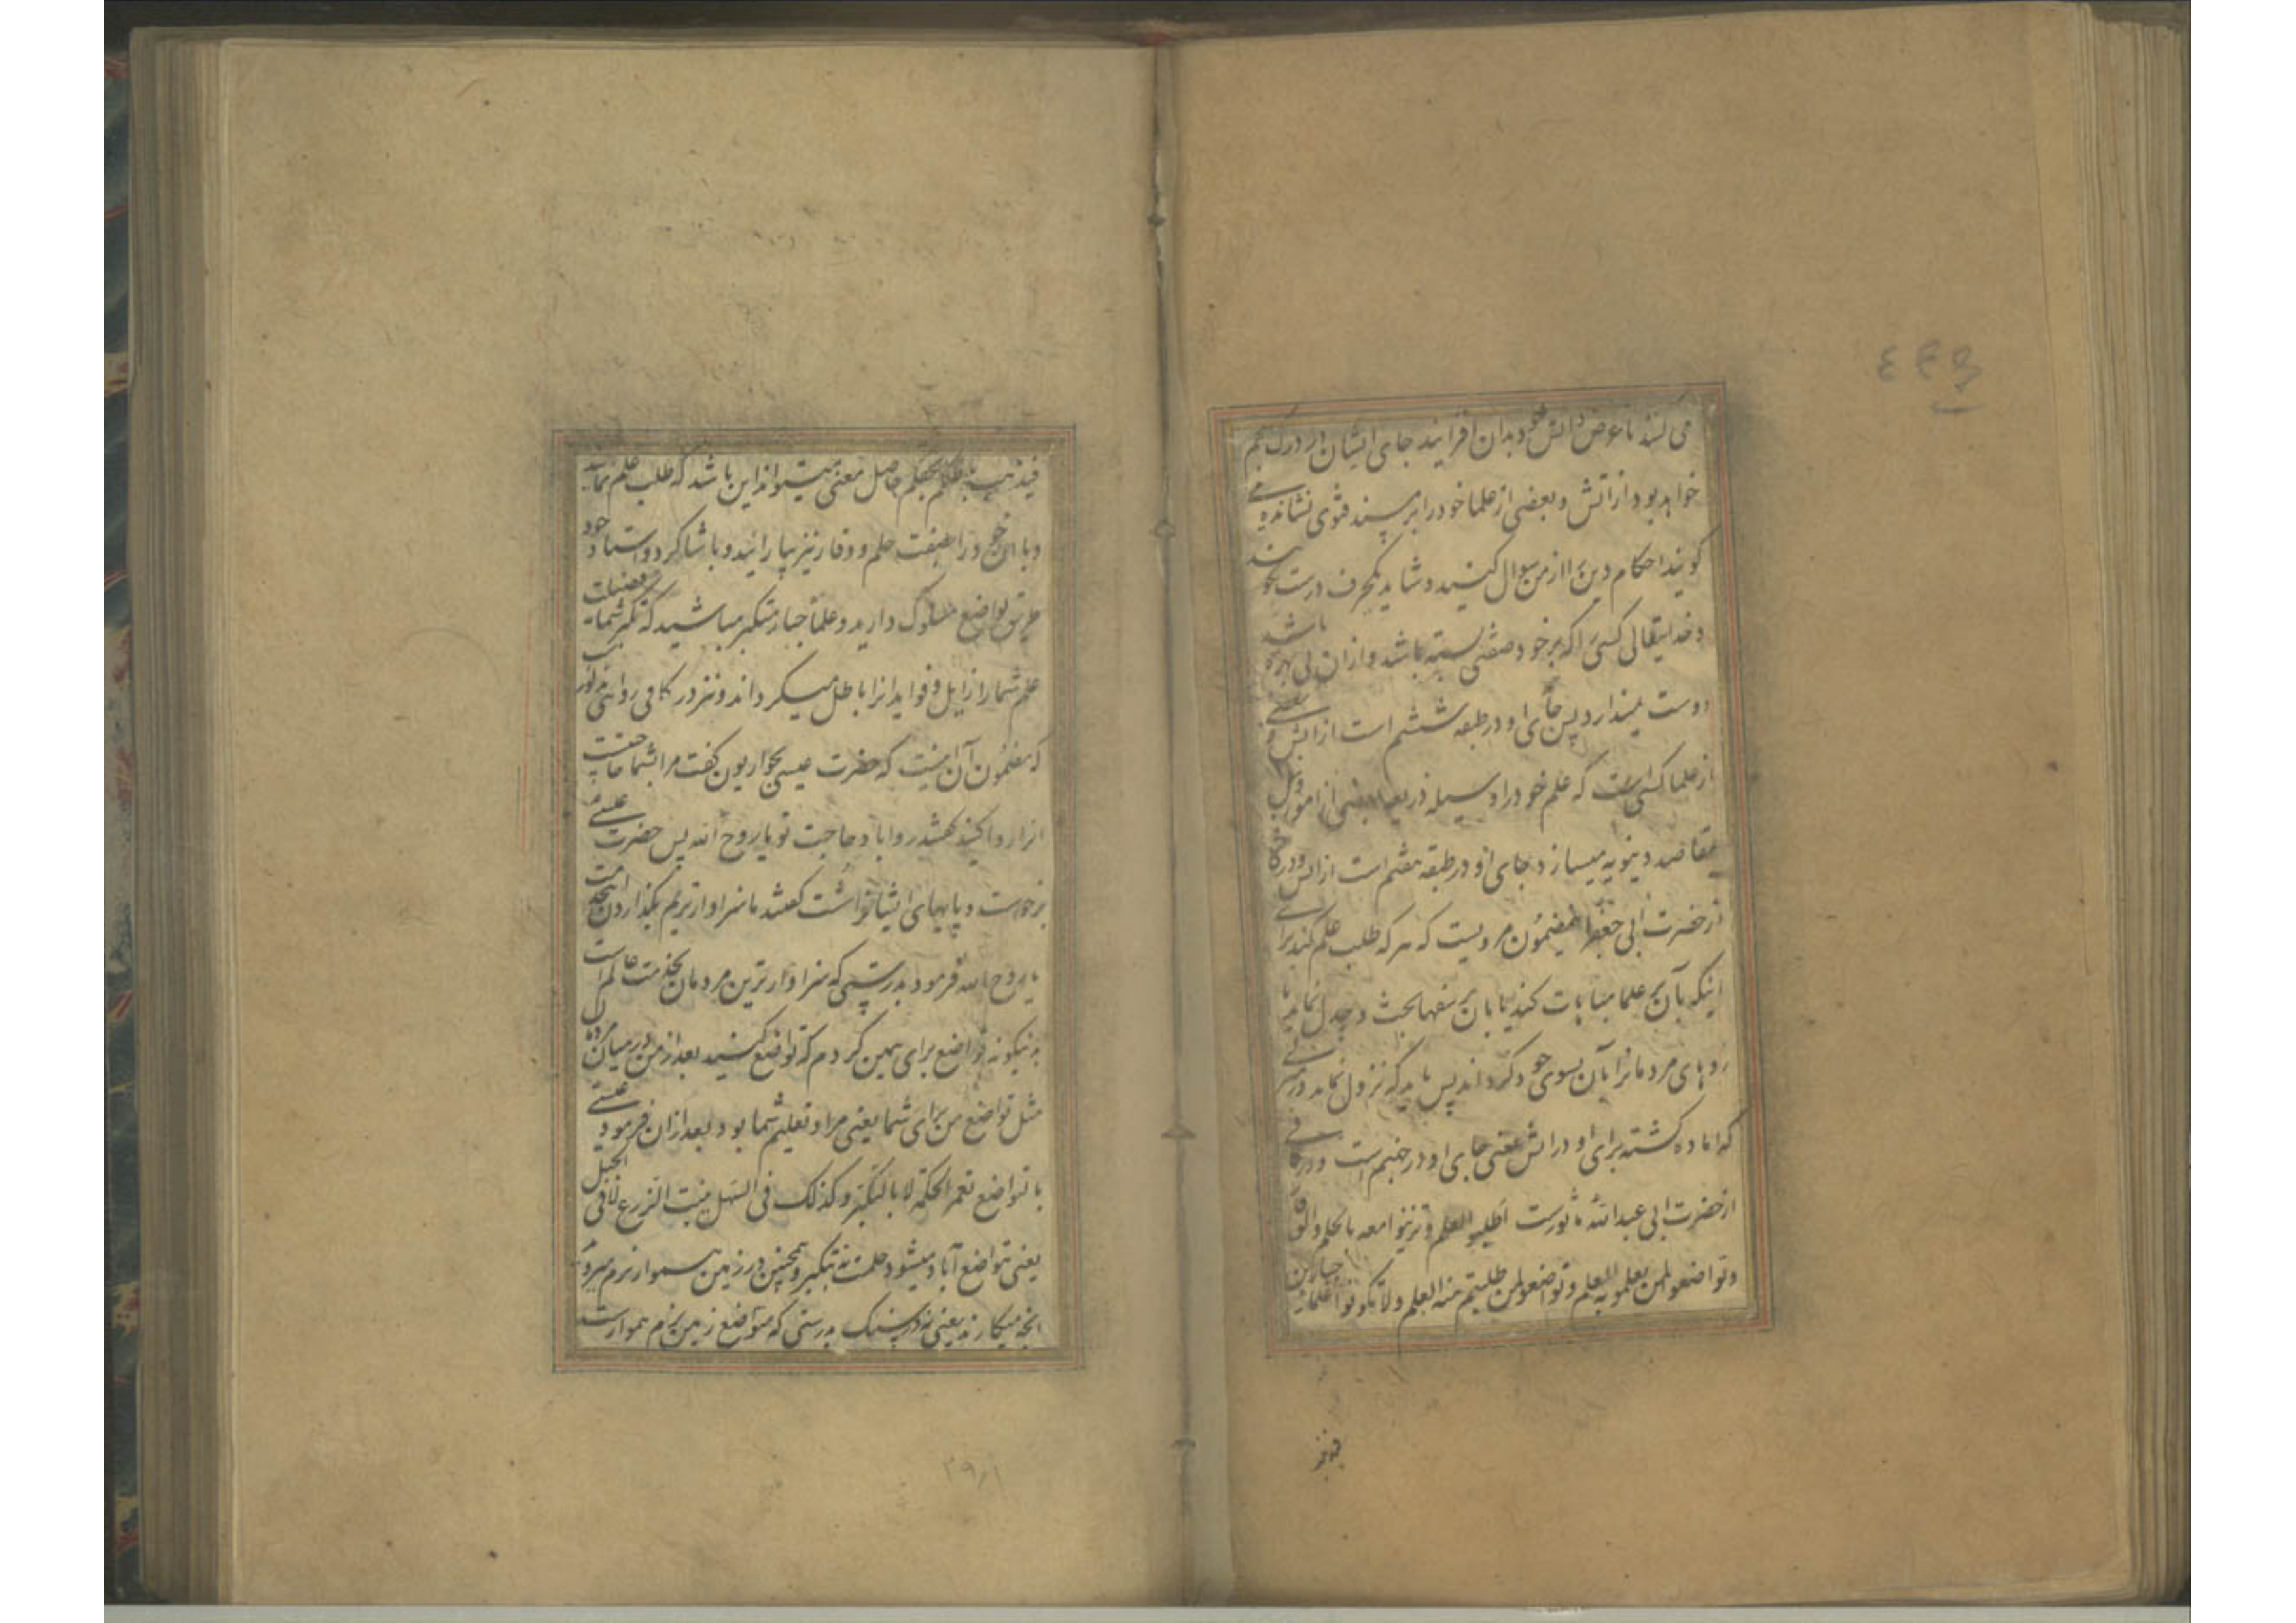 می کنند تا عوض دانش خود بدان افزایند جای ایشان در درک پنجم
خواهد بود از آتش و بعضی از علما خود را بر مسند فتوی نشانده می
کویند احکام دین را از من سوال کنید و شاید یکحرف درست نکویند
و خدایتعالی کسی را که بر خود صفتی بسته باشد و از ان بی بهره باشد
دوست نمیدارد پس جای او در طبقه ششم است از آتش و بعضی
از علما کسی است که علم خود را وسیله و ذریعه بعضی از امور
بمقاصد دنیویه میسازد جای او در طبقه هفتم است از آتش و در کافی
از حضرت ابی جعفر اینمضمون مرویست که هر که طلب علم کند برای
اینکه بآن بر علما مباهات کند یا بان بر سفها بحث و جدل نماید یا
روهای مردمانرا بآن بسوی خود کرداند پس باید که نزول نماید در
که اماده کشته برای او در آتش یعنی جای او در جهنم است و در کافی
از حضرت ابی عبدالله ماثورست اطلبوا العلم و تزینوا معه بالحلم والوقار
وتواضعوا لمن تعلمونه العلم وتواضعوا لمن طلبتم منه العلم ولا تکونوا علماء جبارین
فیذهب باطلکم بحقکم حاصل معنی میتواند این باشد که طلب علم نمایید
و با ان خود را بصفت حلم و وقار نیز بیارائید و با شاکرد و استاد خود
طریق تواضع مسلوک دارید و علماء جبار متکبر مباشید که تکبر شما فضیلت
علم شما را زایل و فواید انرا باطل میکرداند و نیز در کافی روایتی مذکور
که مضمون آن اینست که حضرت عیسی بحواریون کفت مرا بشما حاجتیست
انرا روا کنید کفتند روا باد حاجت تو یا روح الله پس حضرت عیسی
برخواست و پایهای ایشانرا شست کفتند ما سزاوارتریم بکذاردن این خدمت
یا روح الله فرمود بدرستی که سزاوارترین مردمان بخدمت عالم است
اینکونه تواضع برای همین کردم که تواضع کنید بعد از من در میان مردمان
مثل تواضع من برای شما یعنی مراد تعلیم شما بود بعد از ان فرمود عیسی
بالتواضع تعمر الحکمة لا بالتکبر وکذلک فی السهل ینبت الزرع لا فی الجبل
یعنی بتواضع آباد میشود حکمت نه بتکبر و همچنین در زمین هموار نرم میروید
آنچه میکارند یعنی نه در سنک بدرستی که متواضع زمین نرم هموارست